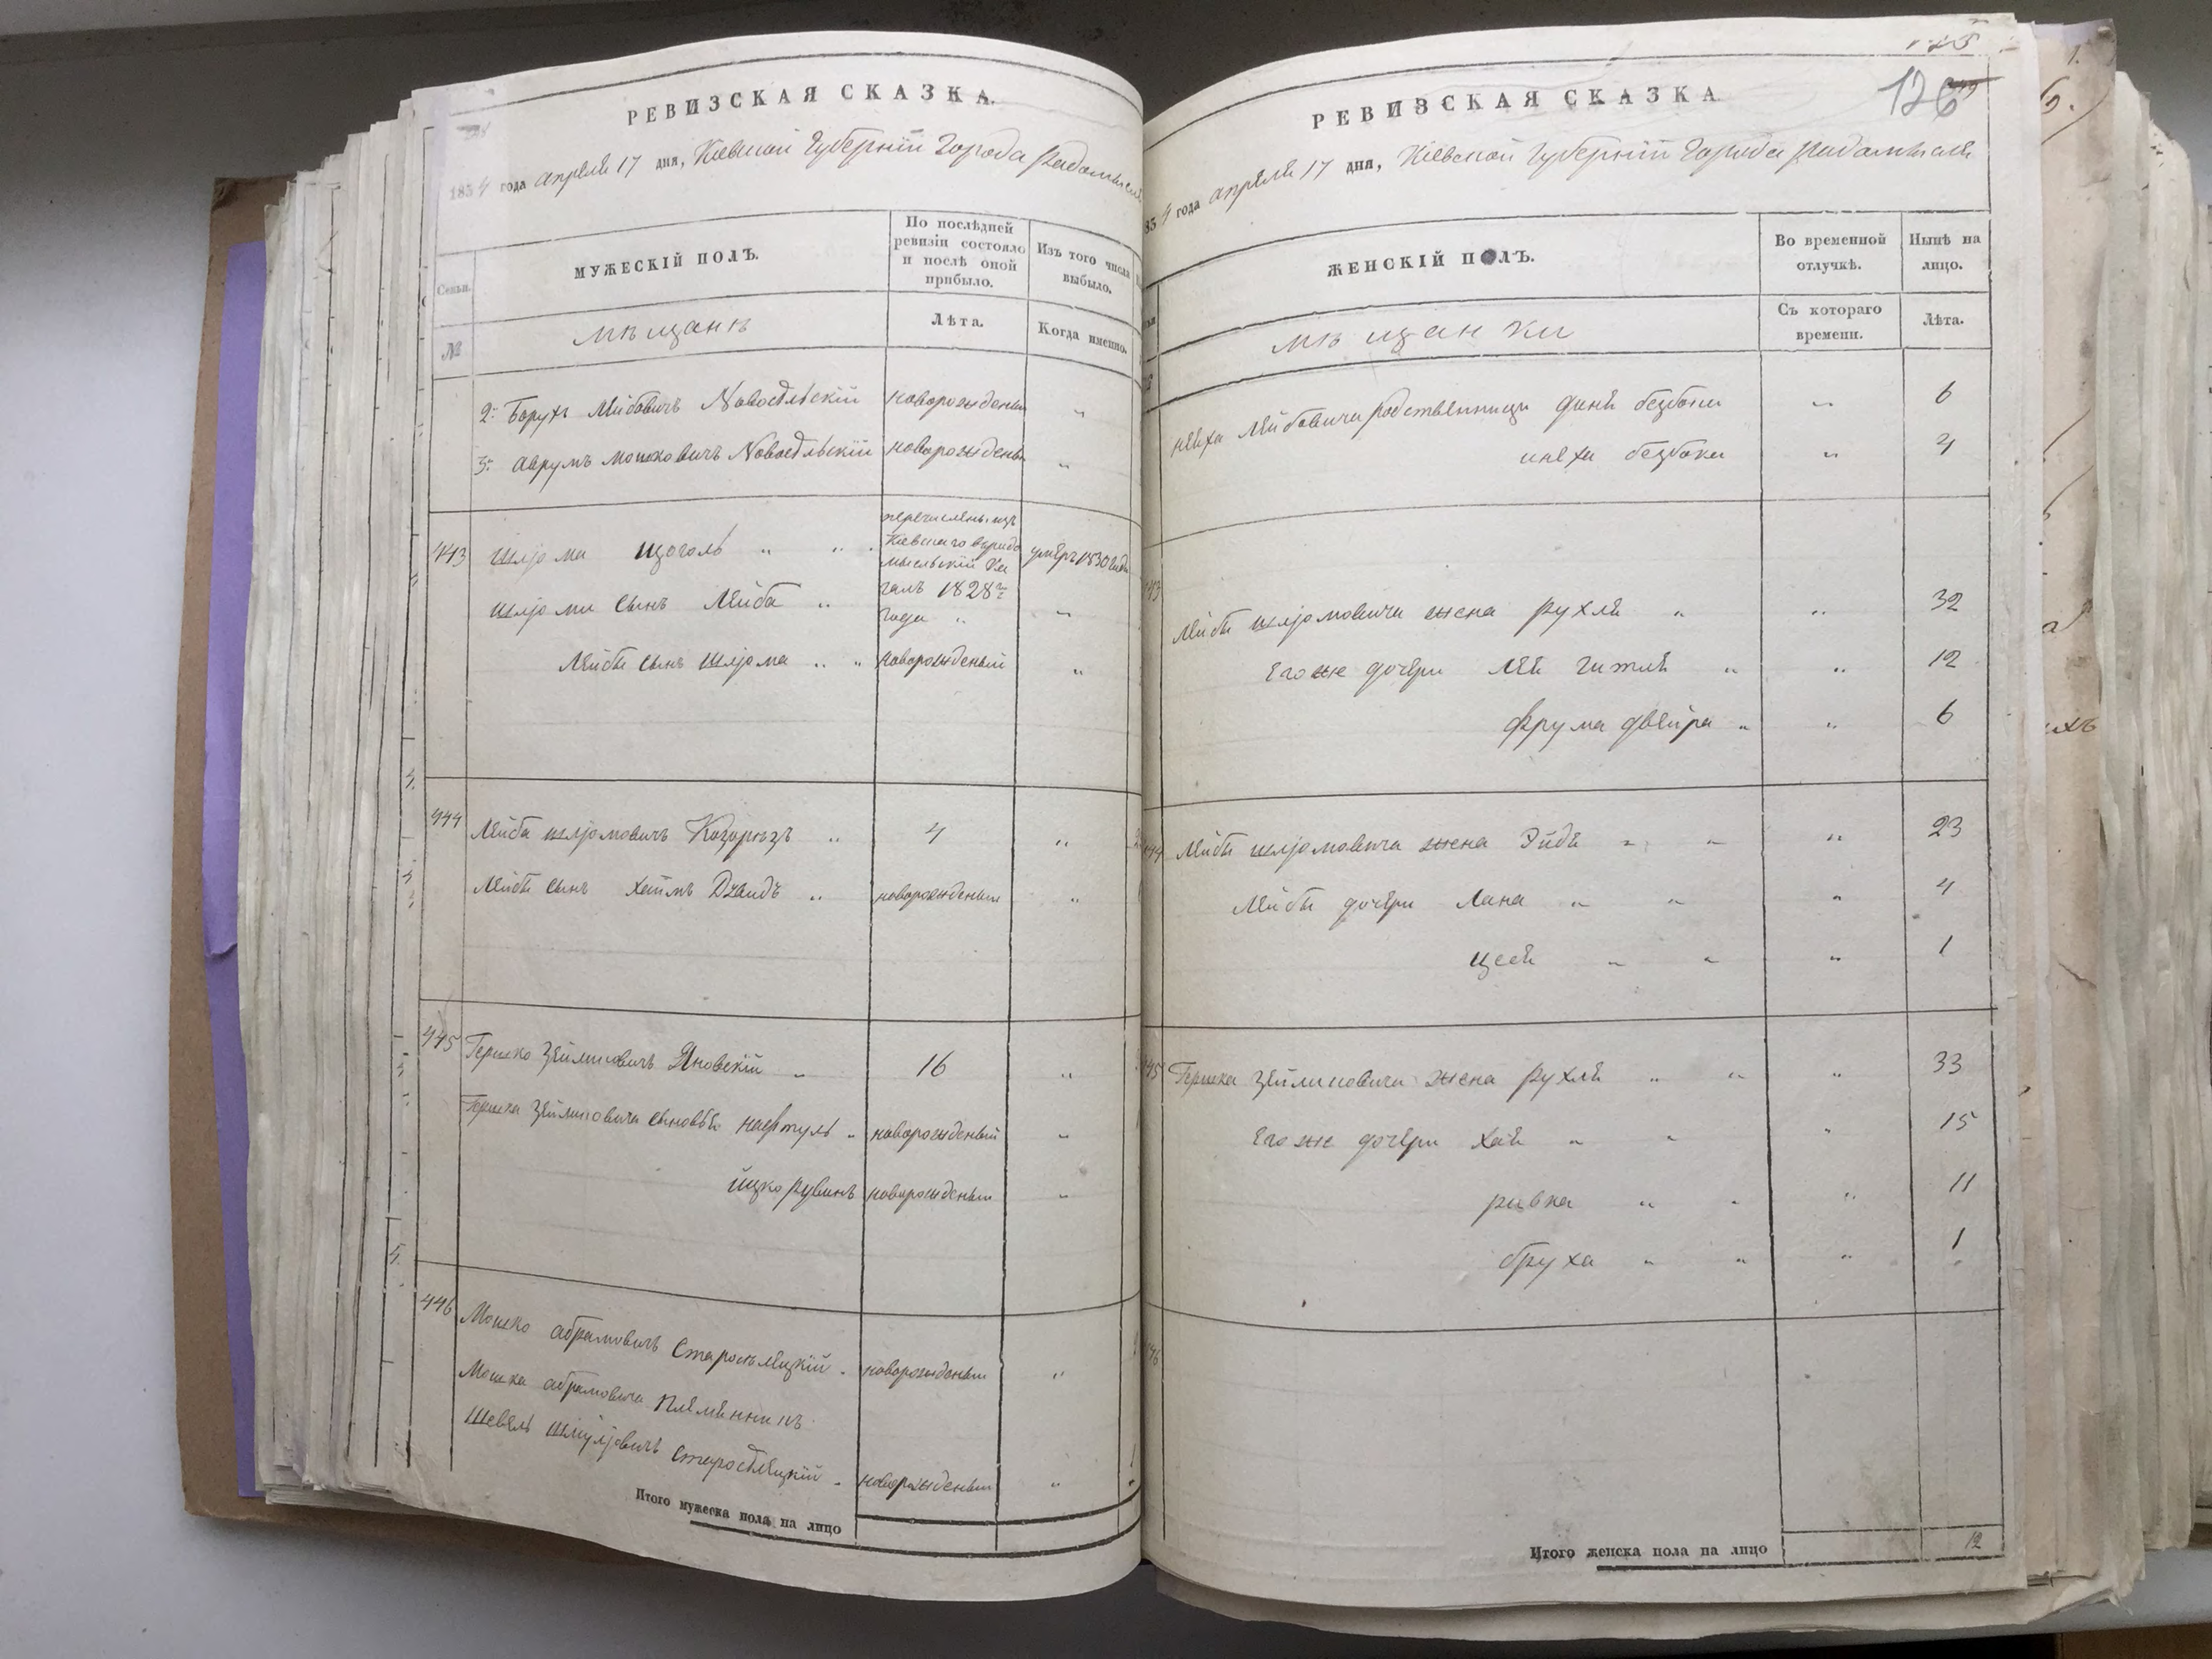 РЕВИЗСКАЯ СКАЗКА.
1854 года апреля 17 дня, Кіевской Губерніи Города Радомысля
Семьи.
№
МУЖЕСКІЙ ПОЛЪ.
По послѣдней ревизіи состояло и послѣ оной прибыло.
Изъ того числа выбыло.
мѣщанѣ
Лѣта.
Когда именно.
2й Борухъ Лейбовичъ Новосѣльскій новорожденый "
3й Аврумъ Мошковичъ Новосѣльскій новорожденый "
443 Шліома Щоголь " " перечисленъ изъ Кіевскаго въ Радомысльскій Кагалъ 1828го года " умеръ 1850 года
Шліоми сынъ Лейба " "
Лейби сынъ Шліома " " новорожденый "
444 Лейба Шліомовичъ " 4 "
Лейби сынъ Хаймъ Давидъ " новорожденый "
445 Гершко Зейликовичъ Яновскій " 16 "
Гершка Зейликовича сыновья Нафтуль " новорожденый "
Ицко Рувинъ новорожденый "
446 Мошко Абрамовичъ Старосѣлецкій " новорожденый "
Мошка Абрамовича племенникъ
Шевель Шмуліовичъ Старосѣлецкій " новорожденый "
Итого мужеска пола на лицо
126
РЕВИЗСКАЯ СКАЗКА
1854 года апреля 17 дня, Кіевской Губерніи Города Радомысля
ЖЕНСКІЙ ПОЛЪ.
Во временной отлучкѣ.
Нынѣ на лицо.
мѣщанки
Съ котораго времени.
Лѣта.
Лейбовича родственници " 6
" 4
443 Лейби Шліомовича жена Рухля " " 32
Его же дочери Лея Гитля " " 12
Фрума Двейра " " 6
444 Лейби Шліомовича жена Эйдя " " " 23
Лейби дочери Хана " " " 4
Цеся " " " 1
445 Гершка Зейликовича жена Рухля " " " 33
Его же дочери Хая " " " 15
Ривка " " " 11
Бруха " " " 1
446
Итого женска пола на лицо 12